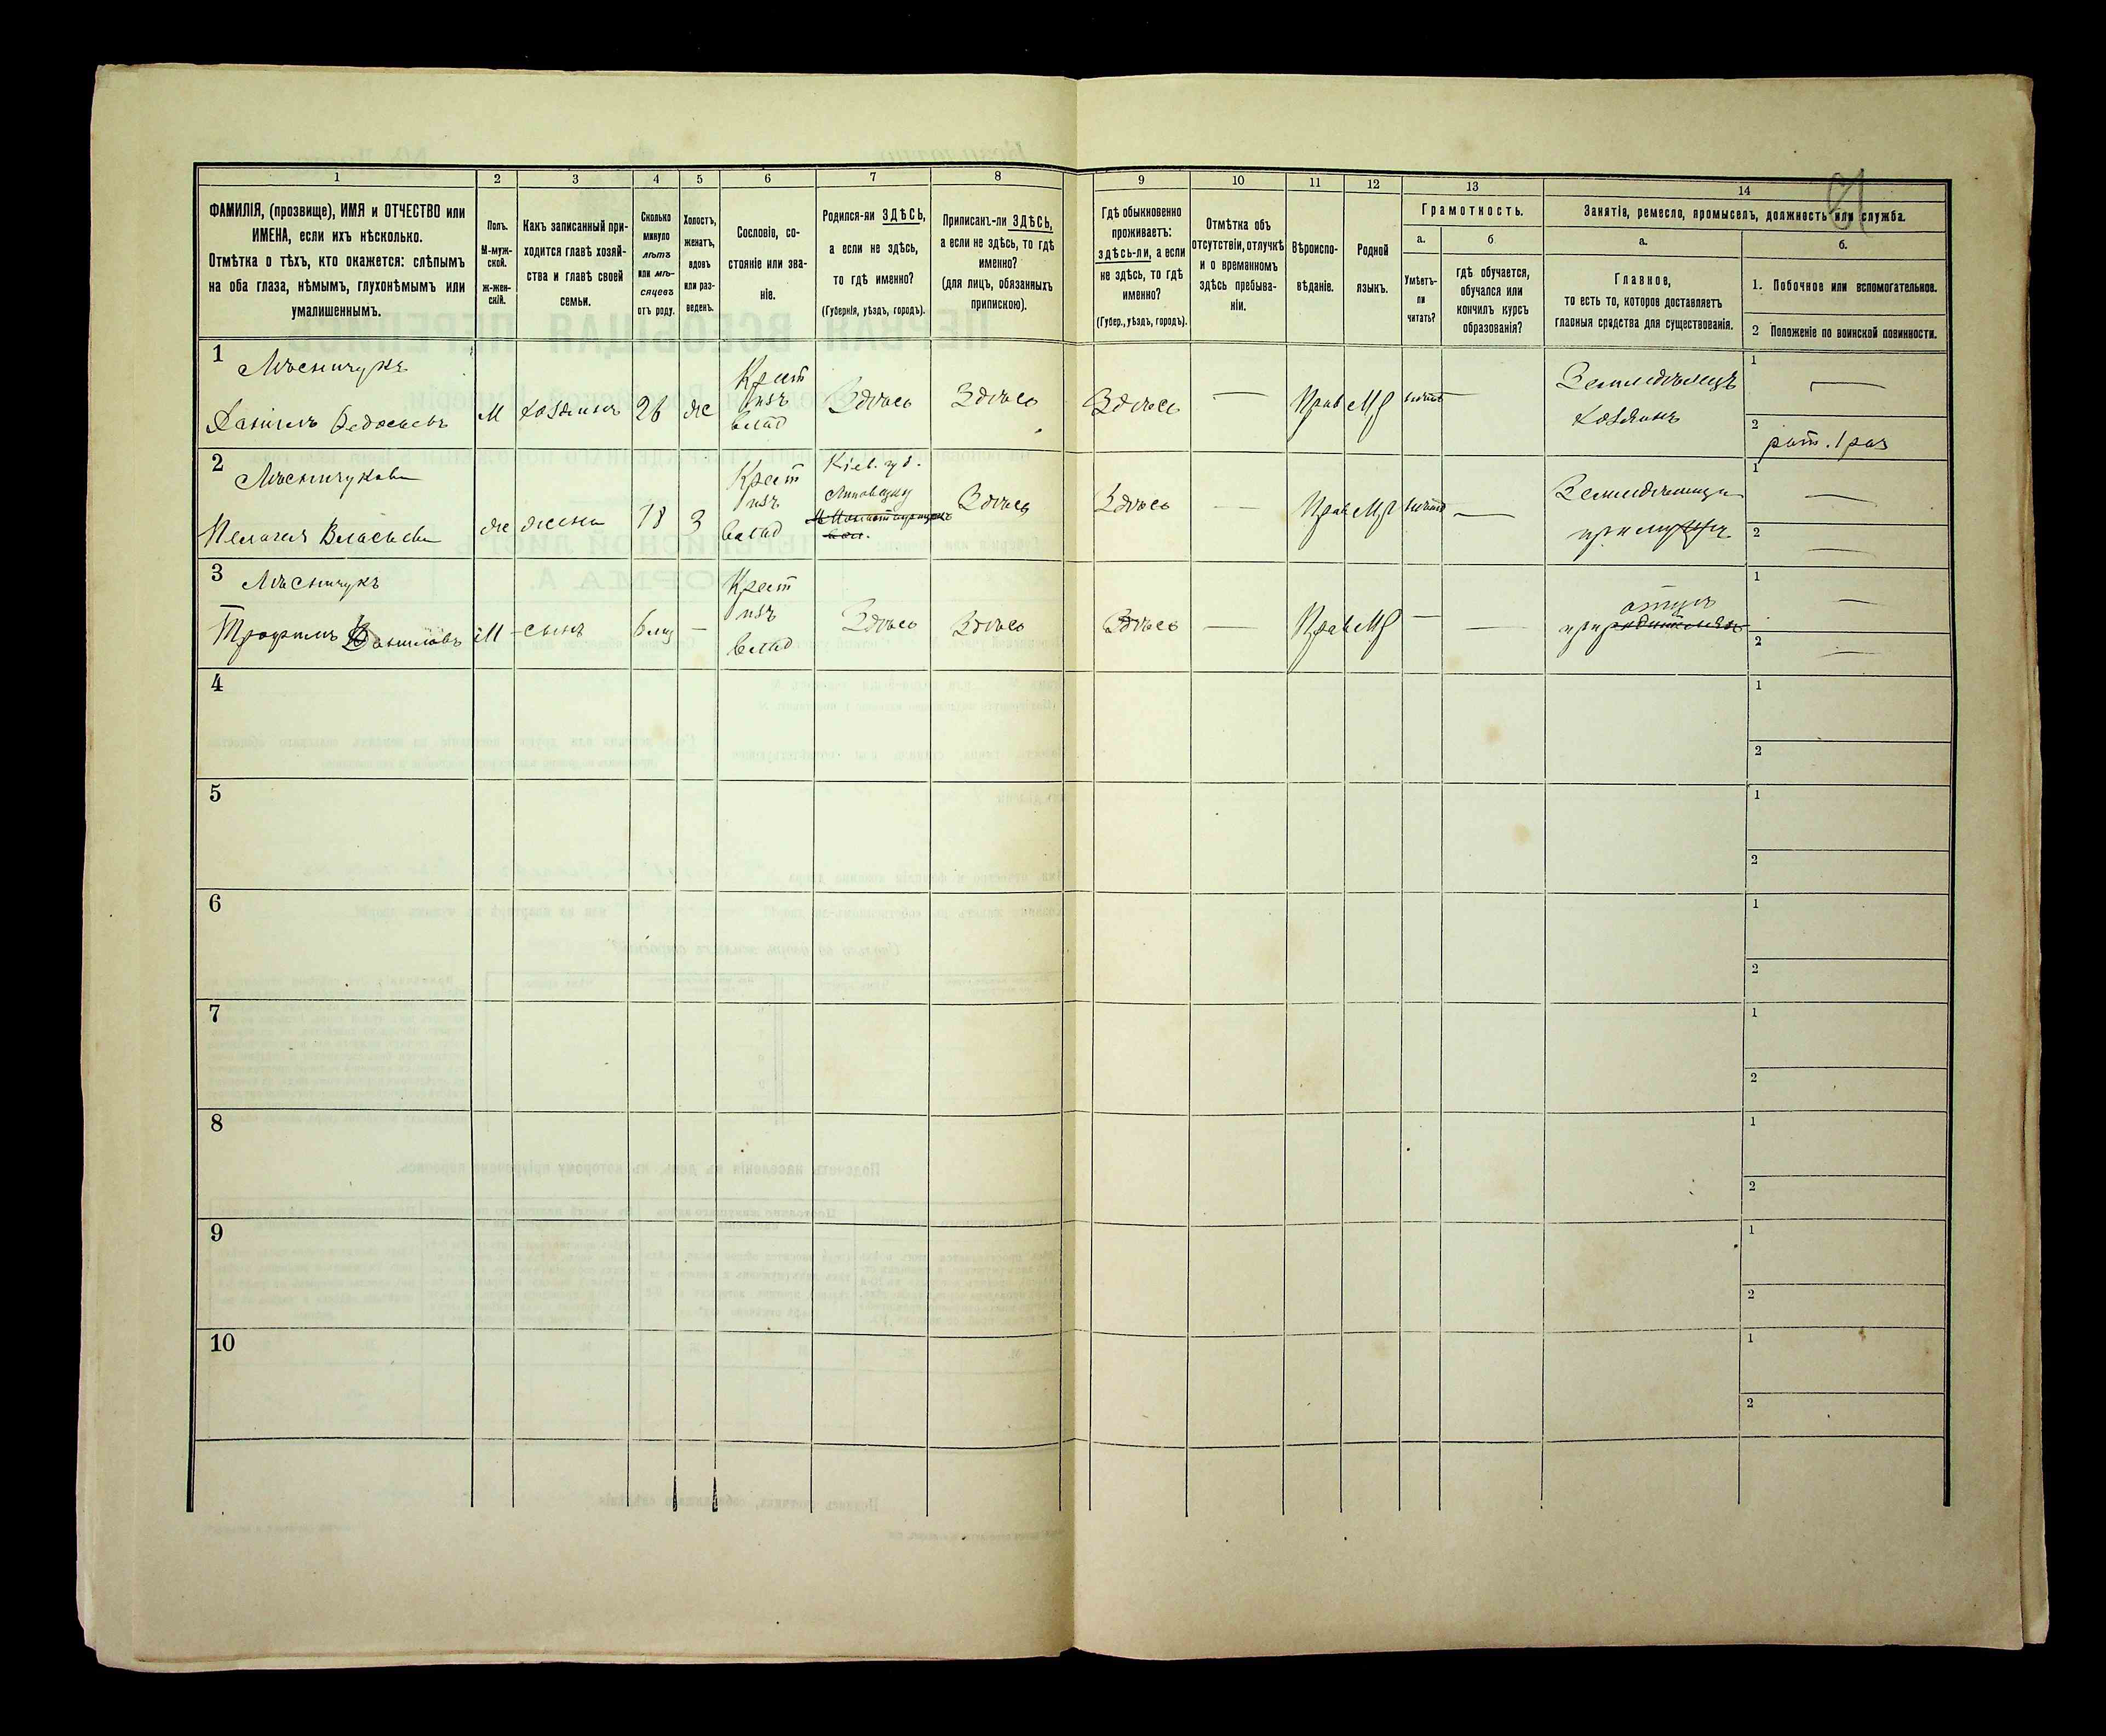 1 2 3 4 5 6 7 8 9 10 11 12 13 14
ФАМИЛІЯ, (прозвище), ИМЯ и ОТЧЕСТВО или
ИМЕНА, если ихъ нѣсколько.
Отмѣтка о тѣхъ, кто окажется: слѣпымъ
на оба глаза, нѣмымъ, глухонѣмымъ или
умалишеннымъ.
Полъ.
М-муж-
ской.
ж-жен-
скій.
Какъ записанный при-
ходится главѣ хозяй-
ства и главѣ своей
семьи.
Сколько
минуло
лѣтъ
или мѣ-
сяцевъ
отъ роду.
Холостъ,
женатъ,
вдовъ
или раз-
веденъ.
Сословіе, со-
стояніе или зва-
ніе.
Родился-ли ЗДѢСЬ,
а если не здѣсь,
то гдѣ именно?
(Губернія, уѣздъ, городъ).
Приписанъ-ли ЗДѢСЬ,
а если не здѣсь, то гдѣ
именно?
(для лицъ, обязанныхъ
припискою).
Гдѣ обыкновенно
проживаетъ:
здѣсь-ли, а если
не здѣсь, то гдѣ
именно?
(Губер., уѣздъ, городъ).
Отмѣтка объ
отсутствіи, отлучкѣ
и о временномъ
здѣсь пребыва-
ніи.
Вѣроиспо-
вѣданіе.
Родной
языкъ.
Грамотность.
а.
Умѣетъ-
ли
читать?
б
гдѣ обучается,
обучался или
кончилъ курсъ
образованія?
Занятіа, ремесло, промыселъ, должность или служба.
а.
Главное,
то есть то, которое доставляетъ
главныя средства для существованія.
б.
1. Побочное или вспомогательное.
2 Положеніе по воинской повинности.
1
Мѣсничукъ
Данiилъ Федосьевъ
М
хозяинъ
26
же
Крест
изъ
влад
Здѣсь
Здѣсь
Здѣсь
—
Прав
МР
—
Земледѣлецъ
хозяинъ
1 —
2 рат. 1 раз
2
Мѣсничукова
Пелагея Власьева
же
жена
18
З
Крест
изъ
влад
Кіев. губ.
Липовецку
Здѣсь
Здѣсь
—
Прав
МР
—
Земледѣлица
при мужѣ
1 —
2 —
3
Мѣсничукъ
Трофимъ Даниловъ
М
сынъ
6 мц
—
Крест
изъ
влад
Здѣсь
Здѣсь
Здѣсь
—
Прав
МР
—
—
отцѣ
при родителяхъ
1 —
2 —
4
1
2
5
1
2
6
1
2
7
1
2
8
1
2
9
1
2
10
1
2